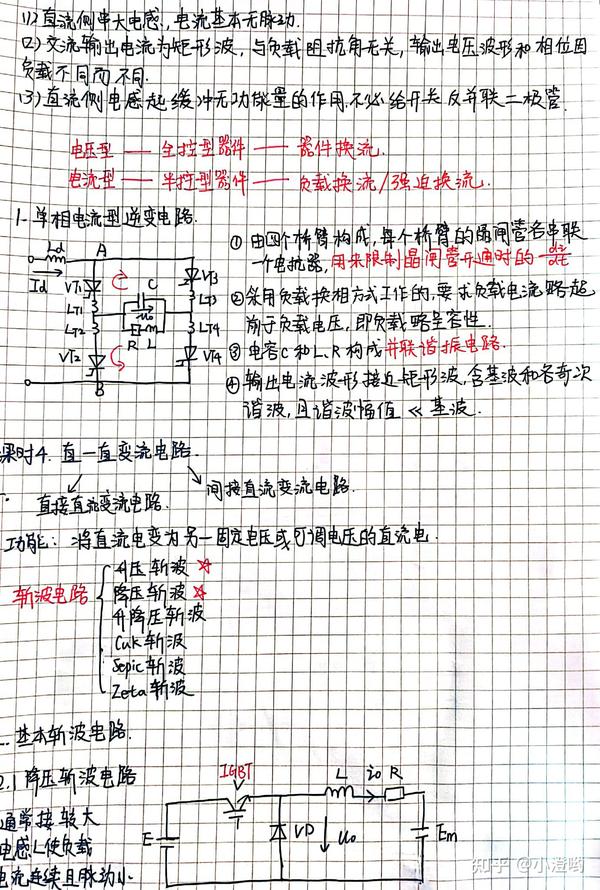 (1)直流侧串大电感,电流基本无脉动.
(2)交流输出电流为矩形波,与负载阻抗角无关,输出电压波形和相位因
负载不同而不同.
(3)直流侧电感起缓冲无功能量的作用,不必给开关反并联二极管.
电压型 — 全控型器件 — 器件换流.
电流型 — 半控型器件 — 负载换流/强迫换流.
1. 单相电流型逆变电路.
Ld
A
Id
VT1
C
VT3
LT1
LT3
LT2
R L
LT4
VT2
VT4
B
① 由四个桥臂构成,每个桥臂的晶闸管各串联
一个电抗器,用来限制晶闸管开通时的di/dt
②采用负载换相方式工作的,要求负载电流略超
前于负载电压,即负载略呈容性.
③ 电容C和L、R构成并联谐振电路.
④ 输出电流波形接近矩形波,含基波和各奇次
谐波,且谐波幅值 ≪ 基波.
课时4. 直-直变流电路.
直接直流变流电路.
间接直流变流电路.
功能: 将直流电变为另一固定电压或可调电压的直流电.
斩波电路
升压斩波 ☆
降压斩波 ☆
升降压斩波
Cuk斩波
Sepic斩波
Zeta斩波
基本斩波电路.
2.1 降压斩波电路
通常接较大
电感L使负载
电流连续且脉动小
IGBT
L
io
R
E
VD
uo
Em
知乎 @小澄哟